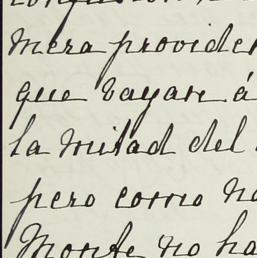 mera provide
que vayan á
la mitad del
pero como no
Monte no ha